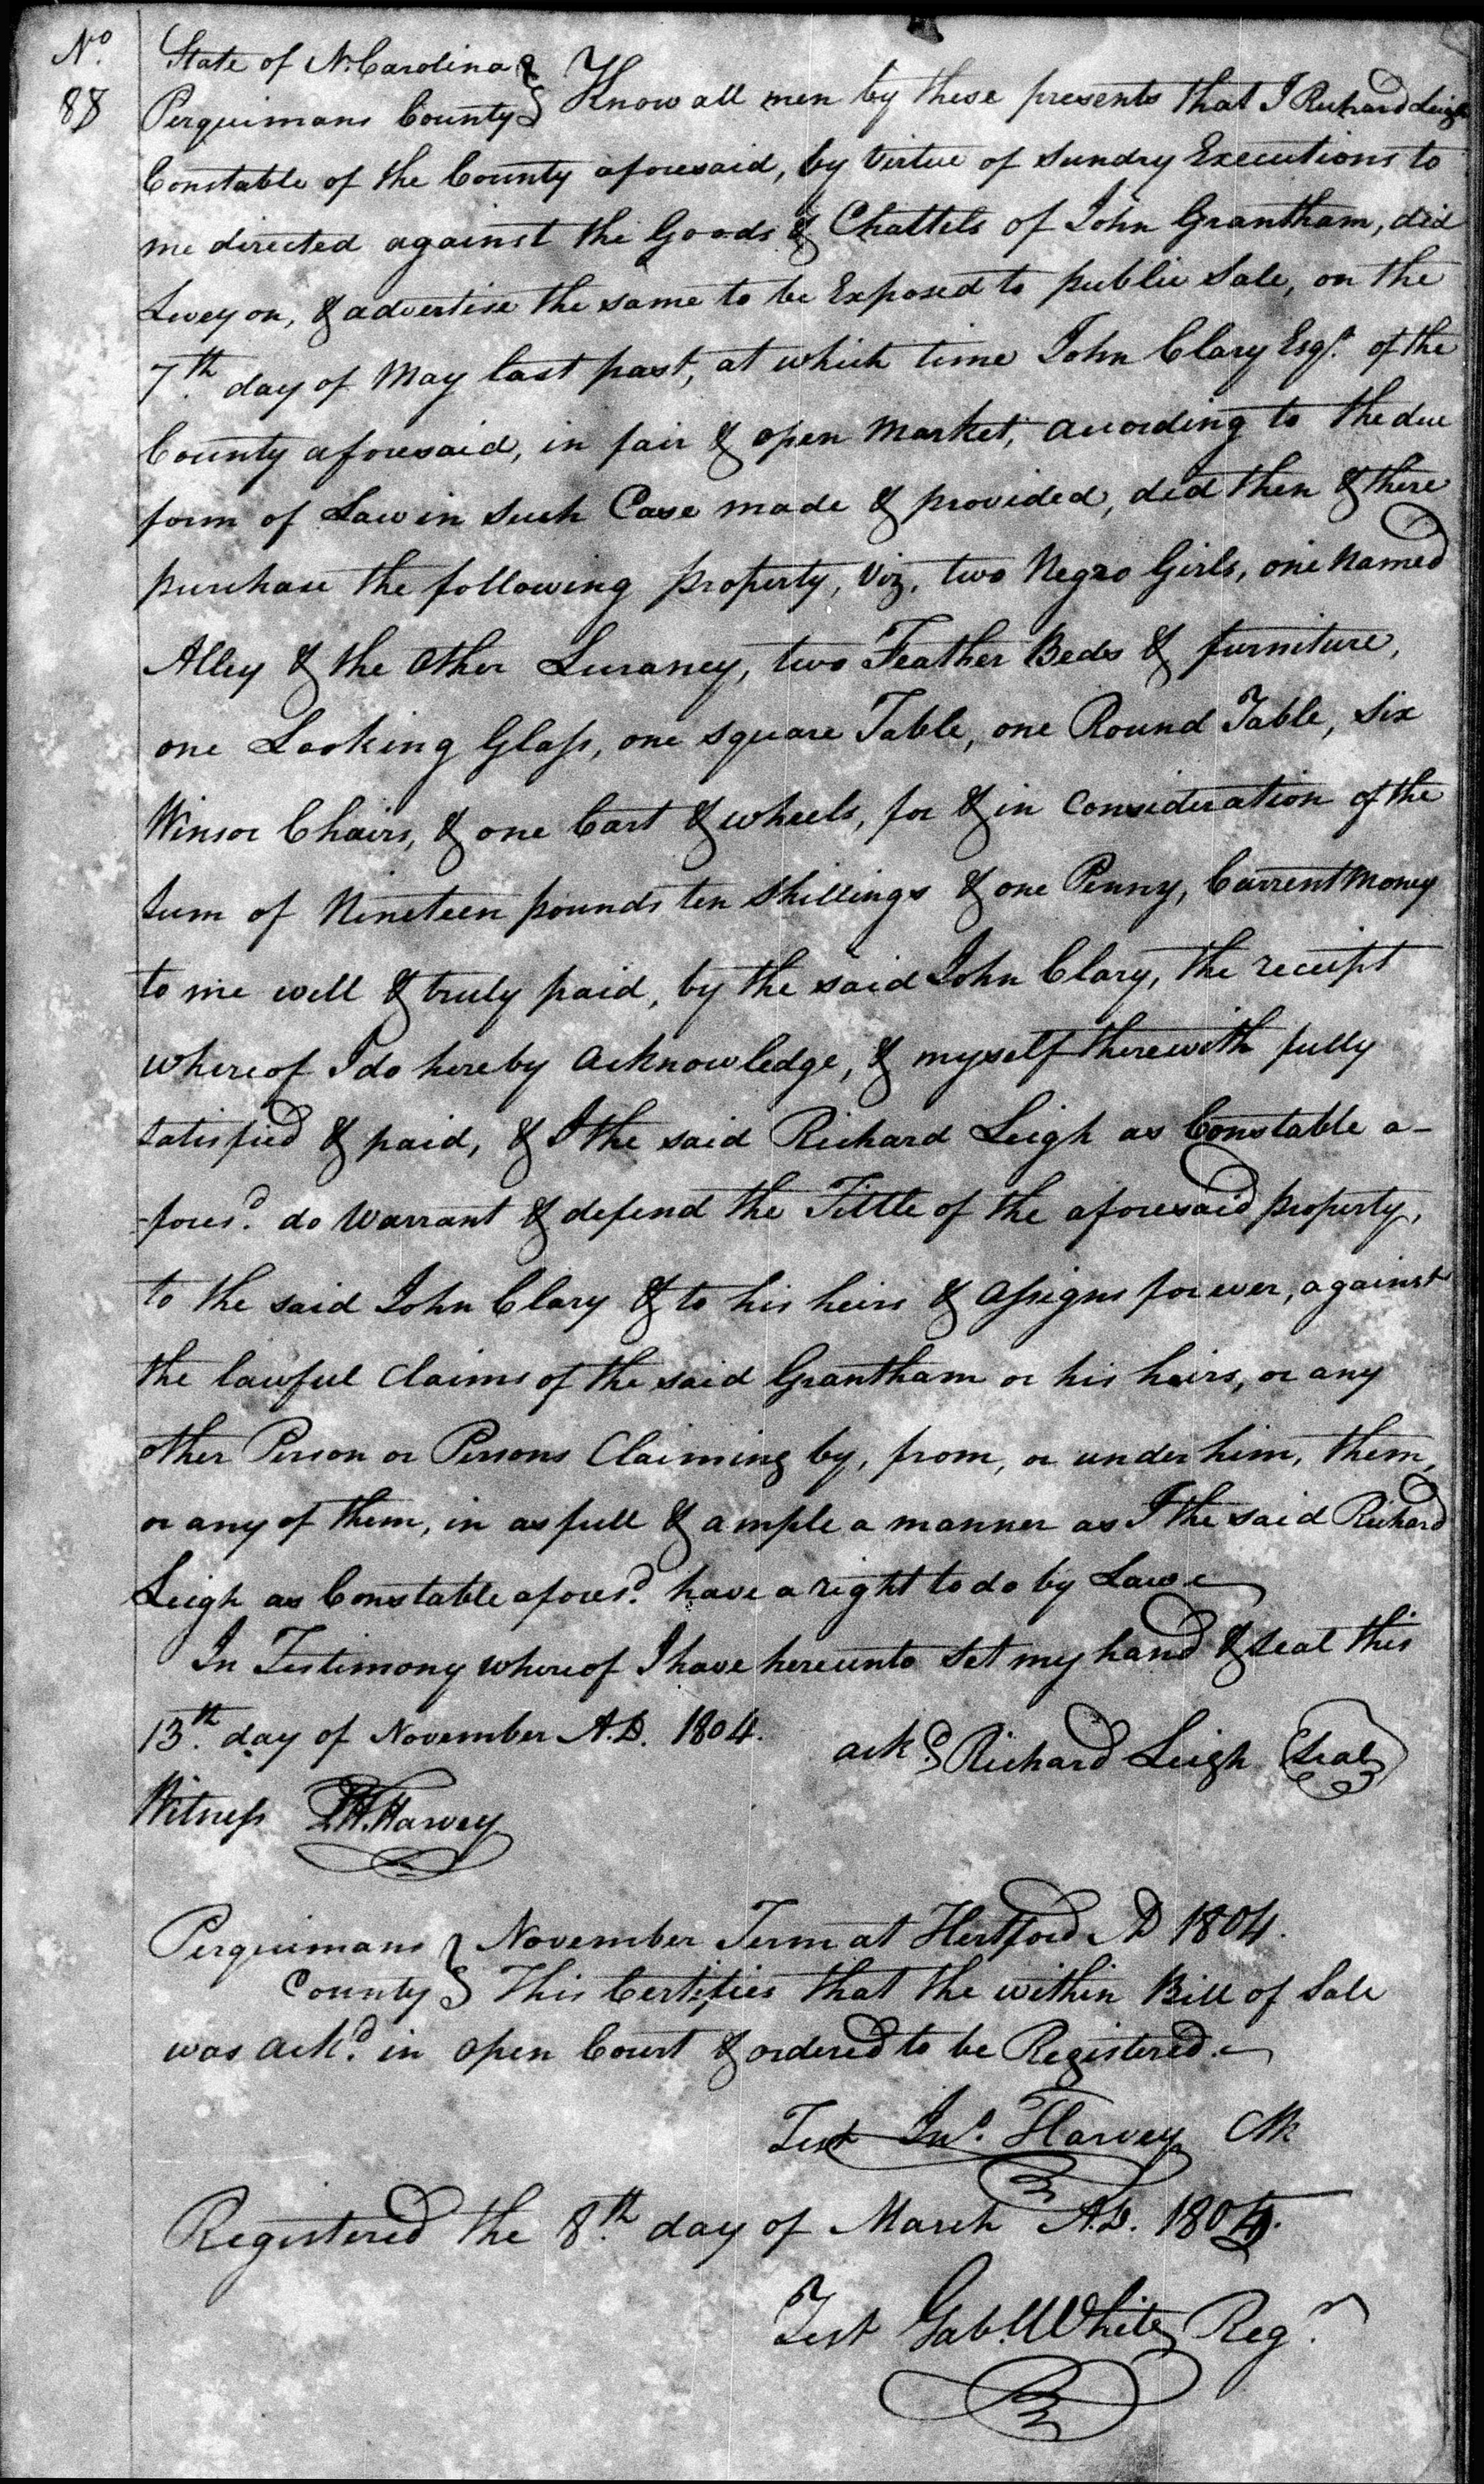 No.
88
State of N. Carolina
Perquimans County } Know all men by these presents that I Richard Leigh
Constable of the County aforesaid, by Virtue of sundry Executions to
me directed against the Goods & Chattels of John Grantham, did
Levey on, & advertise the same to be Exposed to public Sale, on the
7th. day of May last past, at which time John Clary Esqr. of the
County aforesaid, in fair & open Market, according to the due
form of Law in such Case made & provided, did then & there
purchase the following property, Viz. two Negro Girls, one named
Alley & the other Luraney, two Feather Beds & furniture,
one Looking Glass, one square Table, one Round Table, six
Winsor Chairs, & one Cart & wheels, for & in Consideration of the
sum of Nineteen pounds ten shillings & one Penny, Current Money
to me well & truly paid, by the said John Clary, the receipt
whereof I do hereby acknowledge, & myself therewith fully
satisfied & paid, & I the said Richard Leigh as Constable a-
-foresd. do Warrant & defend the Tittle of the aforesaid property,
to the said John Clary & to his heirs & assigns for ever, against
the lawful Claims of the said Grantham or his heirs, or any
other Person or Persons Claiming by, from, or under him, them,
or any of them, in as full & ample a manner as I the said Richard
Leigh as Constable aforesd. have a right to do by Law
In Testimony whereof I have hereunto set my hand & seal this
13th. day of November A.D. 1804.
ackd. } Richard Leigh (Seal)
Witness Harvey
Perquimans } November Term at Hertford AD 1804.
County } This Certifies that the within Bill of Sale
was ackd. in open Court & ordered to be Registered.
Test Jno. Harvey Clk
Registered the 8th. day of March A.D. 180
Test Gabl. White Regr.